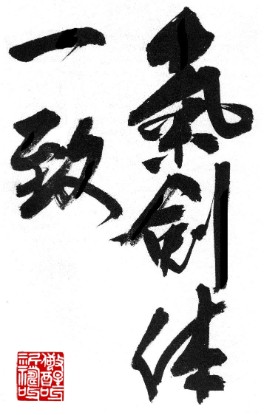 氣剣体
一致